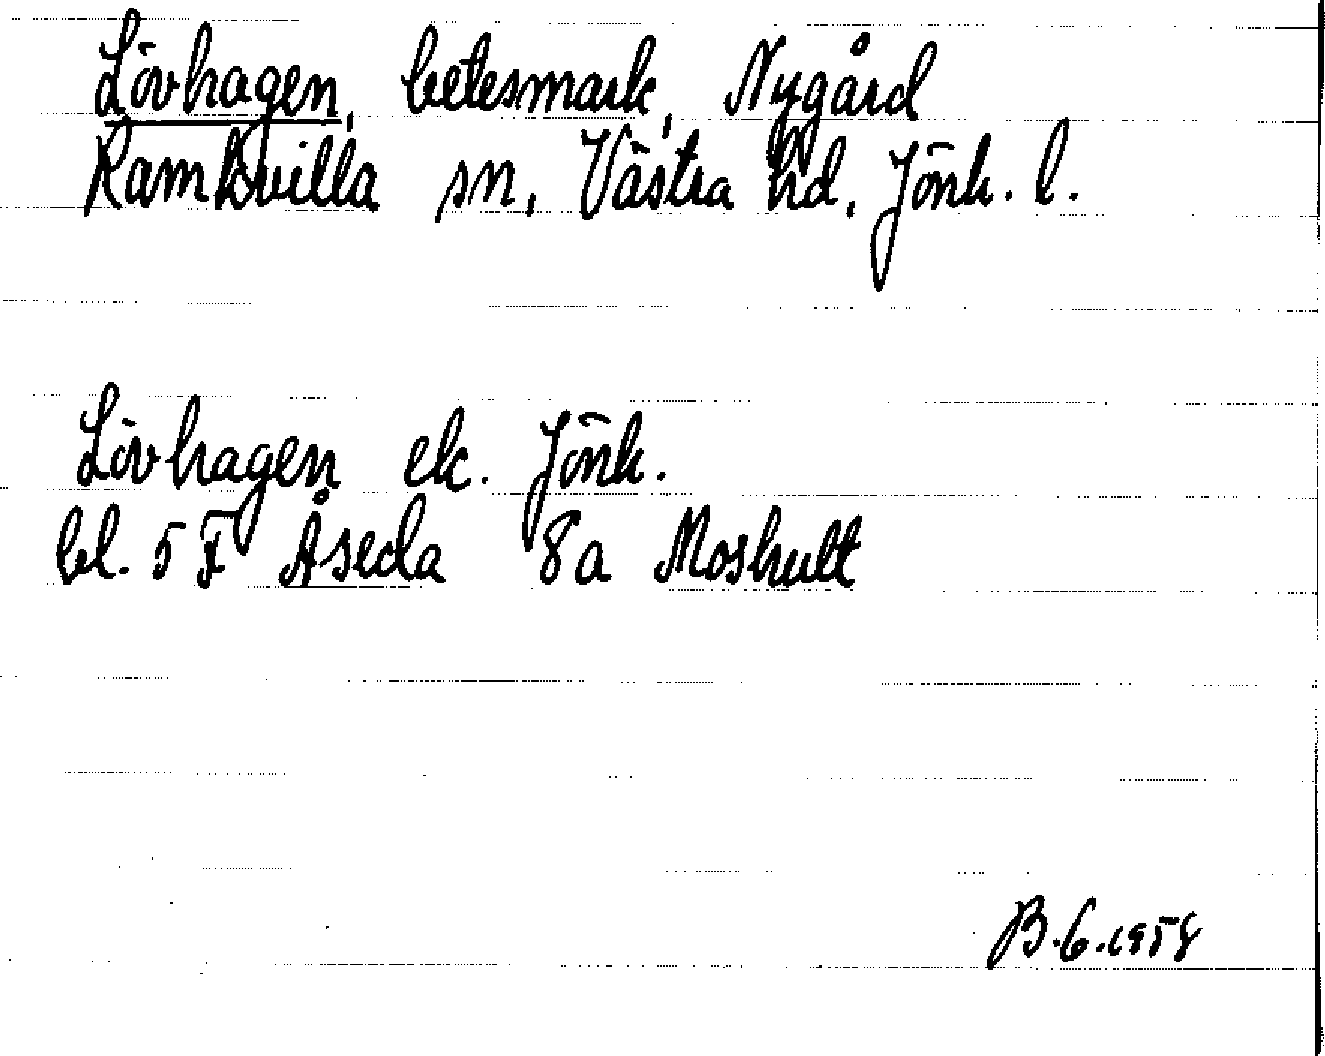 Lövhagen, betesmark, Nygård
Ramkvilla sn, Västra hd, Jönk. l.
Lövhagen ek. Jönk.
bl. 5 F Åseda 8a Moshult
B.G.1958